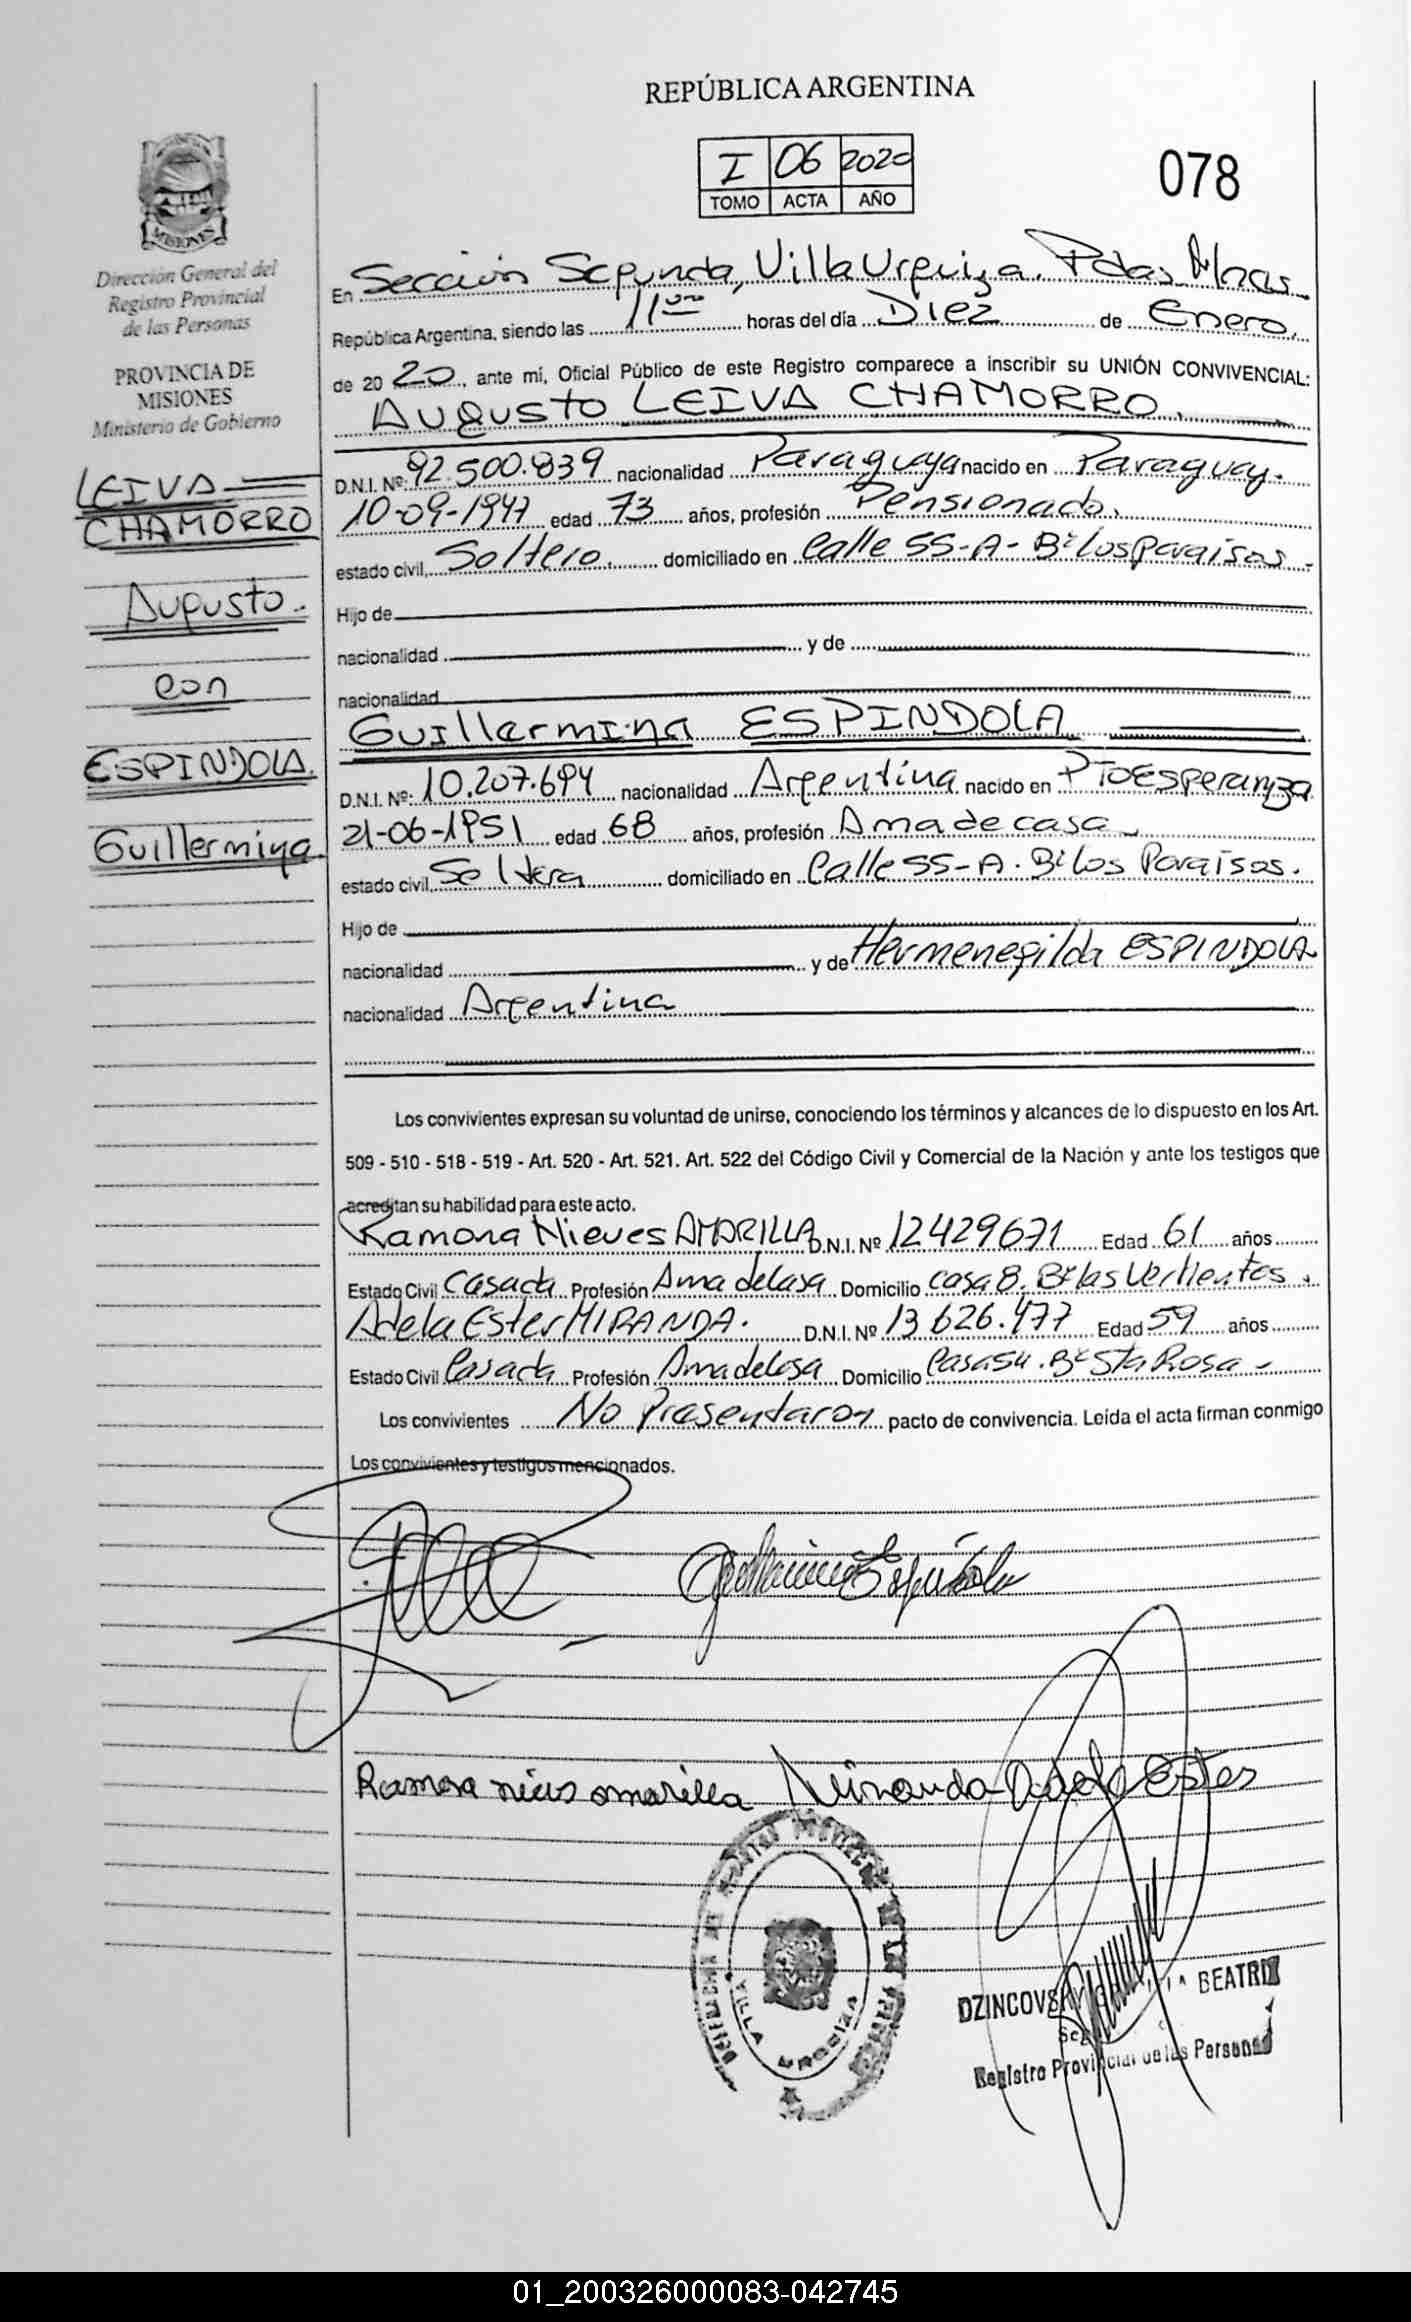 REPÚBLICA ARGENTINA
I 06 2020
TOMO ACTA AÑO
078
MISIONES
Dirección General del
Registro Provincial
de las Personas
PROVINCIA DE
MISIONES
Ministerio de Gobierno
LEIVA
CHAMORRO
Augusto.
con
ESPINDOLA.
Guillermina.
En Sección Segunda, Villa Urquiza. Pdas. Mnes.
República Argentina, siendo las 11:00 horas del día Diez de Enero.
de 20 20, ante mí, Oficial Público de este Registro comparece a inscribir su UNIÓN CONVIVENCIAL:
Augusto LEIVA CHAMORRO.
D.N.I. Nº: 92.500.839 nacionalidad Paraguaya nacido en Paraguay.
10-09-1947 edad 73 años, profesión Pensionado.
estado civil, Soltero. domiciliado en Calle SS-A- Bº Los Paraisos.
Hijo de
nacionalidad y de
nacionalidad
Guillermina ESPINDOLA
D.N.I. Nº: 10.207.694 nacionalidad Argentina nacido en Pto Esperanza
21-06-1951 edad 68 años, profesión Ama de casa
estado civil, Soltera domiciliado en Calle SS-A. Bº Los Paraísos.
Hijo de
nacionalidad y de Hermenegilda ESPINDOLA
nacionalidad Argentina
Los convivientes expresan su voluntad de unirse, conociendo los términos y alcances de lo dispuesto en los Art.
509 - 510 - 518 - 519 - Art. 520 - Art. 521. Art. 522 del Código Civil y Comercial de la Nación y ante los testigos que
acreditan su habilidad para este acto.
Ramona Nieves AMARILLA D.N.I. Nº 12429671 Edad 61 años
Estado Civil Casada Profesión Ama de Casa Domicilio Casa 8. Bº las Vertientes.
Adela Ester MIRANDA. D.N.I. Nº 13626.477 Edad 59 años
Estado Civil Casada Profesión Ama de Casa Domicilio Casa 54. Bº Sta Rosa
Los convivientes No Presentaron pacto de convivencia. Leída el acta firman conmigo
Los convivientes y testigos mencionados.
Guillermina Espindola
Ramona nieves amarilla Miranda Adela Ester
VILLA URQUIZA
BEATRIZ
Registro Provincial de las Personas
01_200326000083-042745